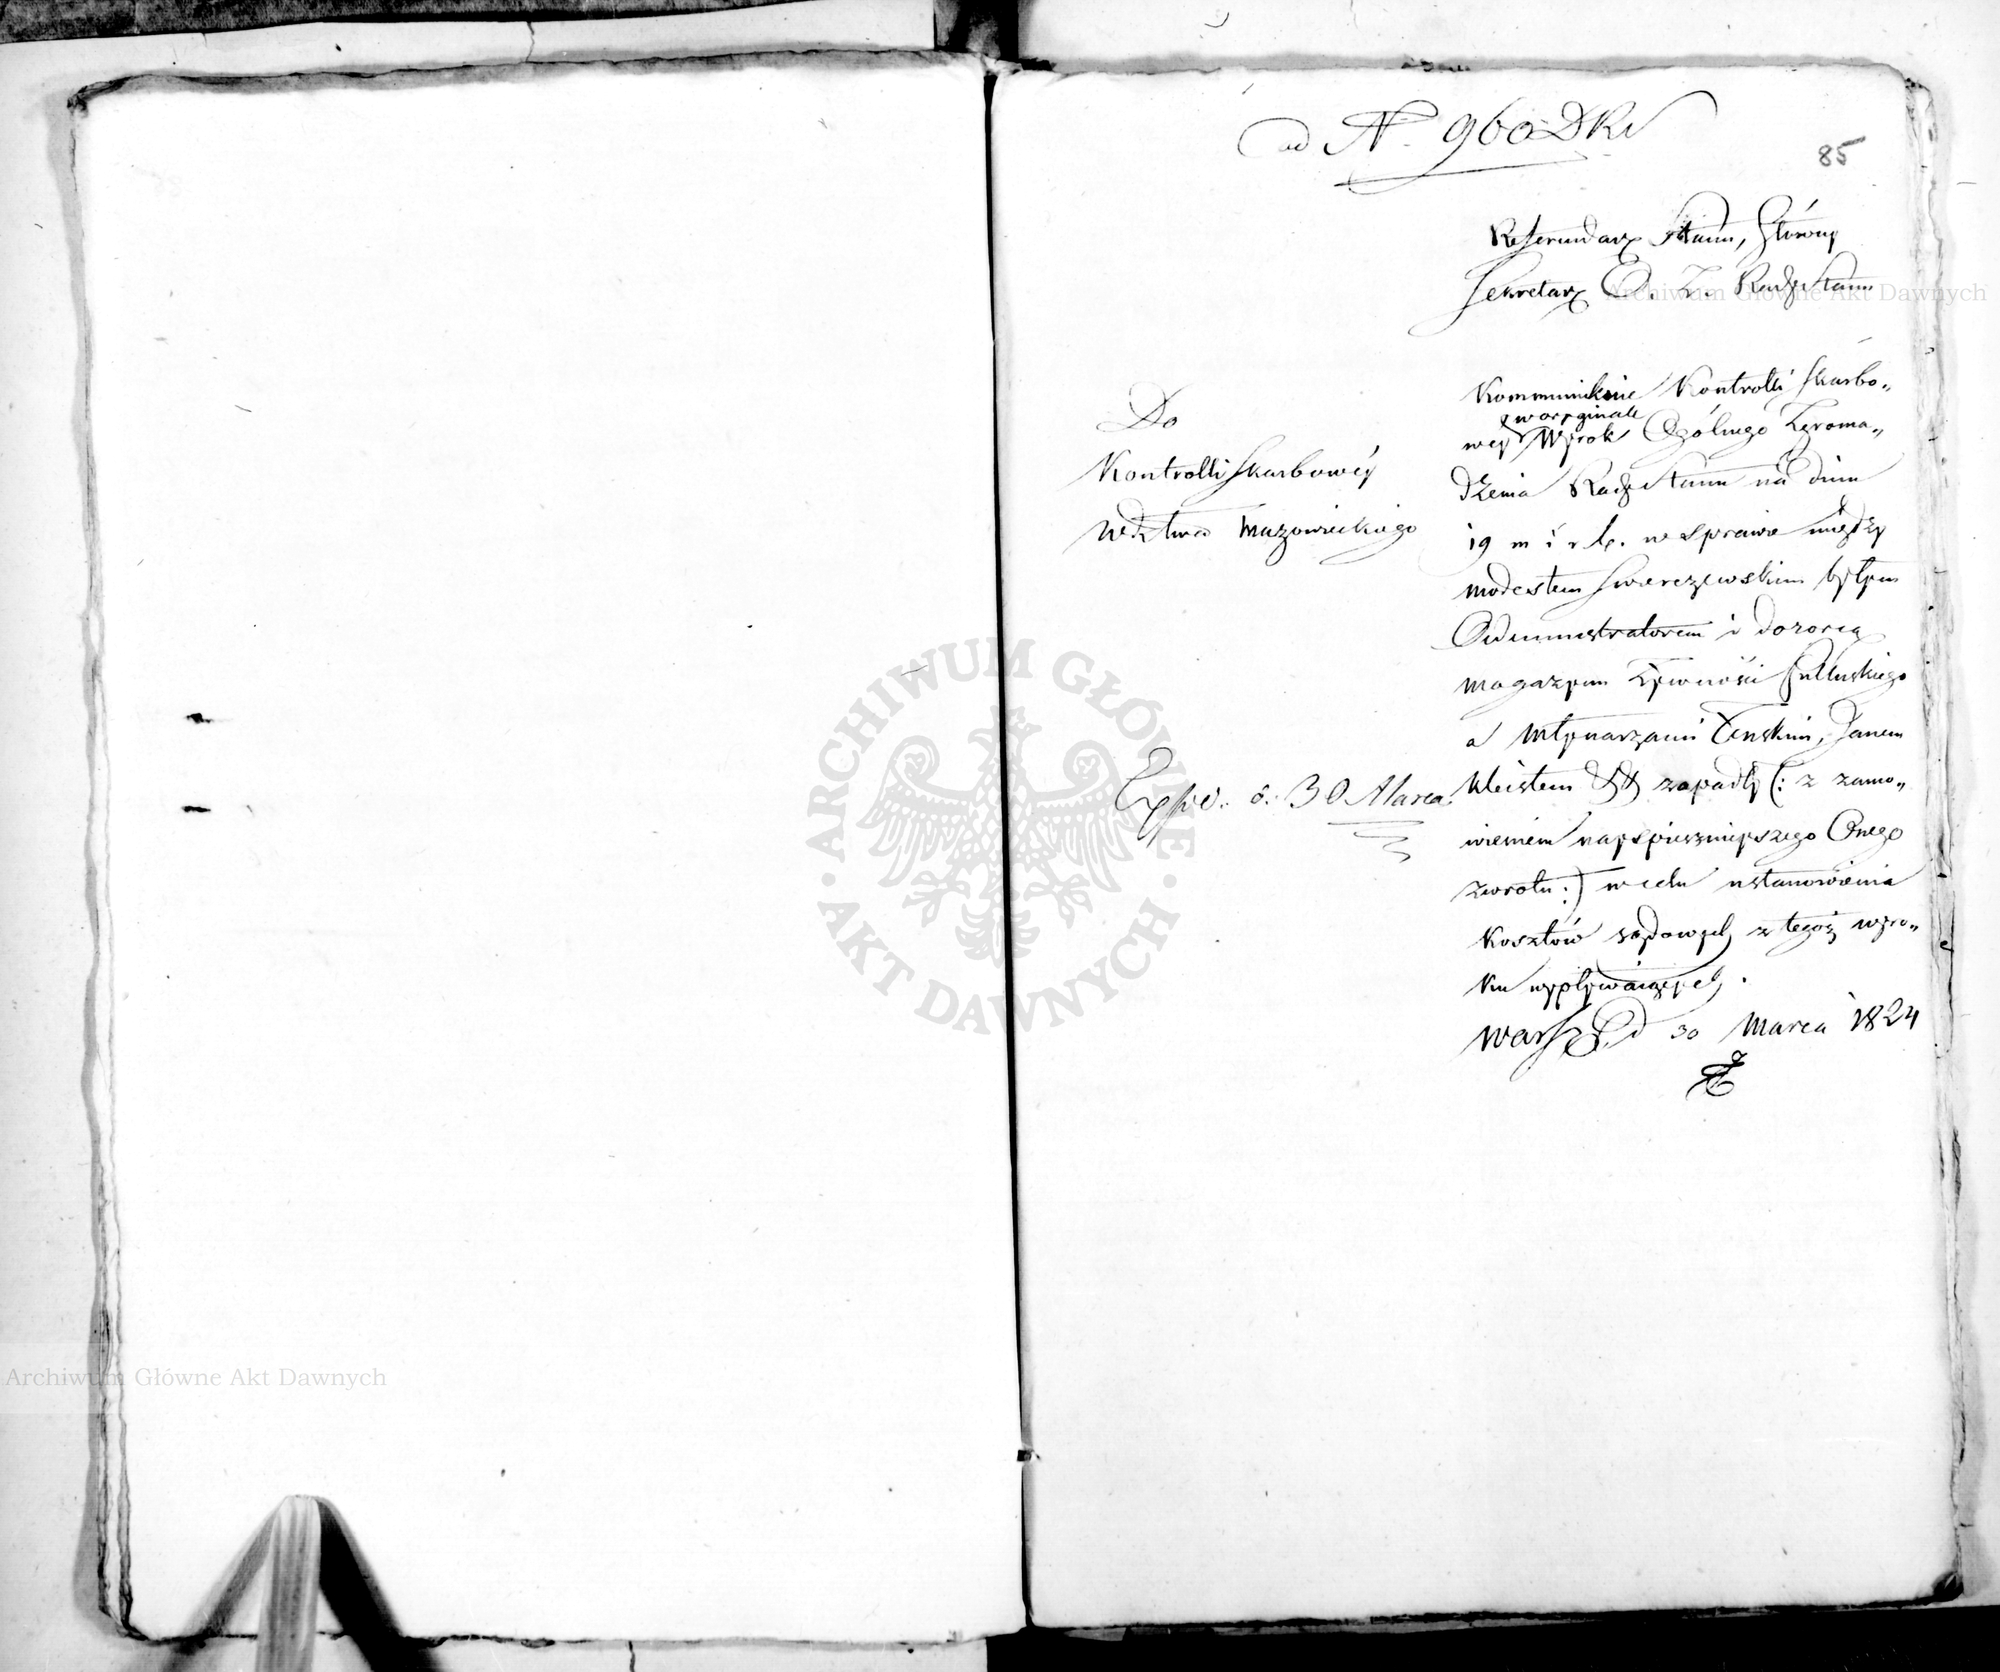 ad N. 960 DKr
85
Referendarz Stanu, Główny
Sekretarz O. Z. Rady Stanu
Do
Kontrolli Skarbowéy
Wdztwa Mazowieckiego
Expd. d. 30 Marca
Kommunikuie Kontrolli Skarbo„
w oryginale
wey Wyrok Ogólnego Zgroma„
dzenia Rady Stanu na dniu
19 m i r b. w sprawie między
Modestem Swierczewskim byłym
Administratorem i dozorcą
magazynu żywności Pułtuskiego
a młynarzami Janem
Kleistem zapadły (: z zamo„
wieniem nayspiesznieyszego Onego
zwrotu :) w celu ustanowienia
Kosztów sądowych z tegoż wyro„
ku wypływaiących.
Warsz. d 30 Marca 1824
Archiwum Główne Akt Dawnych
ARCHIWUM GŁÓWNE AKT DAWNYCH
Archiwum Główne Akt Dawnych